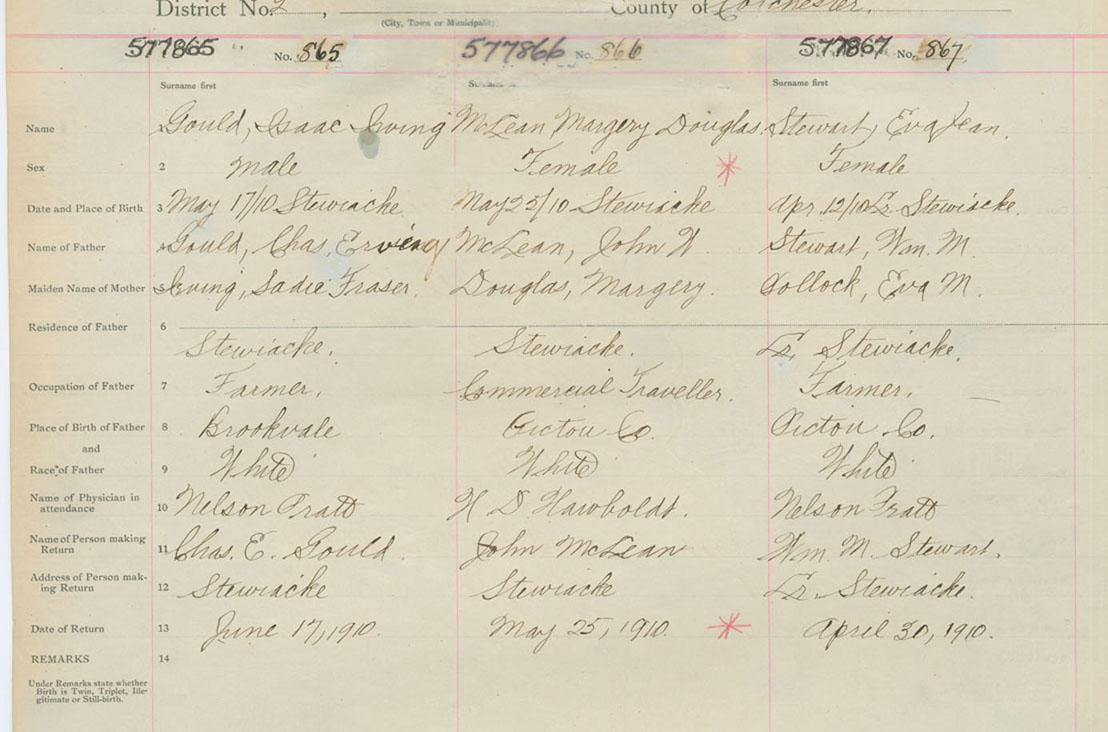 District No. 2, County of Colchester.
(City, Town or Municipality)
577865 No. 865 577866 No. 866 577867 No. 867
Surname first Surname first Surname first
Name Gould, Isaac Irving McLean Margery Douglas. Stewart, Eva Jean.
Sex 2 Male Female Female
Date and Place of Birth 3 May 17/10 Stewiacke May 25/10 Stewiacke Apr. 12/10 Lr. Stewiacke.
Name of Father 4 Gould, Chas. Erving McLean, John W Stewart, Wm. M.
Maiden Name of Mother 5 Irving, Sadie Fraser. Douglas, Margery. Pollock, Eva M.
Residence of Father 6
Stewiacke. Stewiacke. Lr. Stewiacke.
Occupation of Father 7 Farmer. Commercial Traveller. Farmer.
Place of Birth of Father 8 Brookvale Pictou Co. Pictou Co.
and
Race of Father 9 White White White
Name of Physician in
attendance 10 Nelson Pratt H D Hawboldt. Nelson Pratt
Name of Person making
Return 11 Chas. E. Gould. John McLean Wm. M. Stewart.
Address of Person mak-
ing Return 12 Stewiacke Stewiacke Lr. Stewiacke.
Date of Return 13 June 17, 1910. May 25, 1910. April 30, 1910.
REMARKS 14
Under Remarks state whether
Birth is Twin, Triplet, Ille-
gitimate or Still-birth.